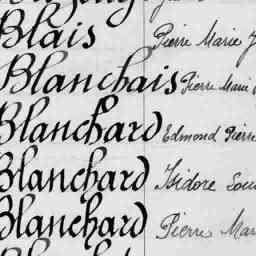 Blais Pierre Marie J
Blanchais Pierre Marie
Blanchard Edmond Pierre
Blanchard Isidore Lou
Blanchard Pierre Mar